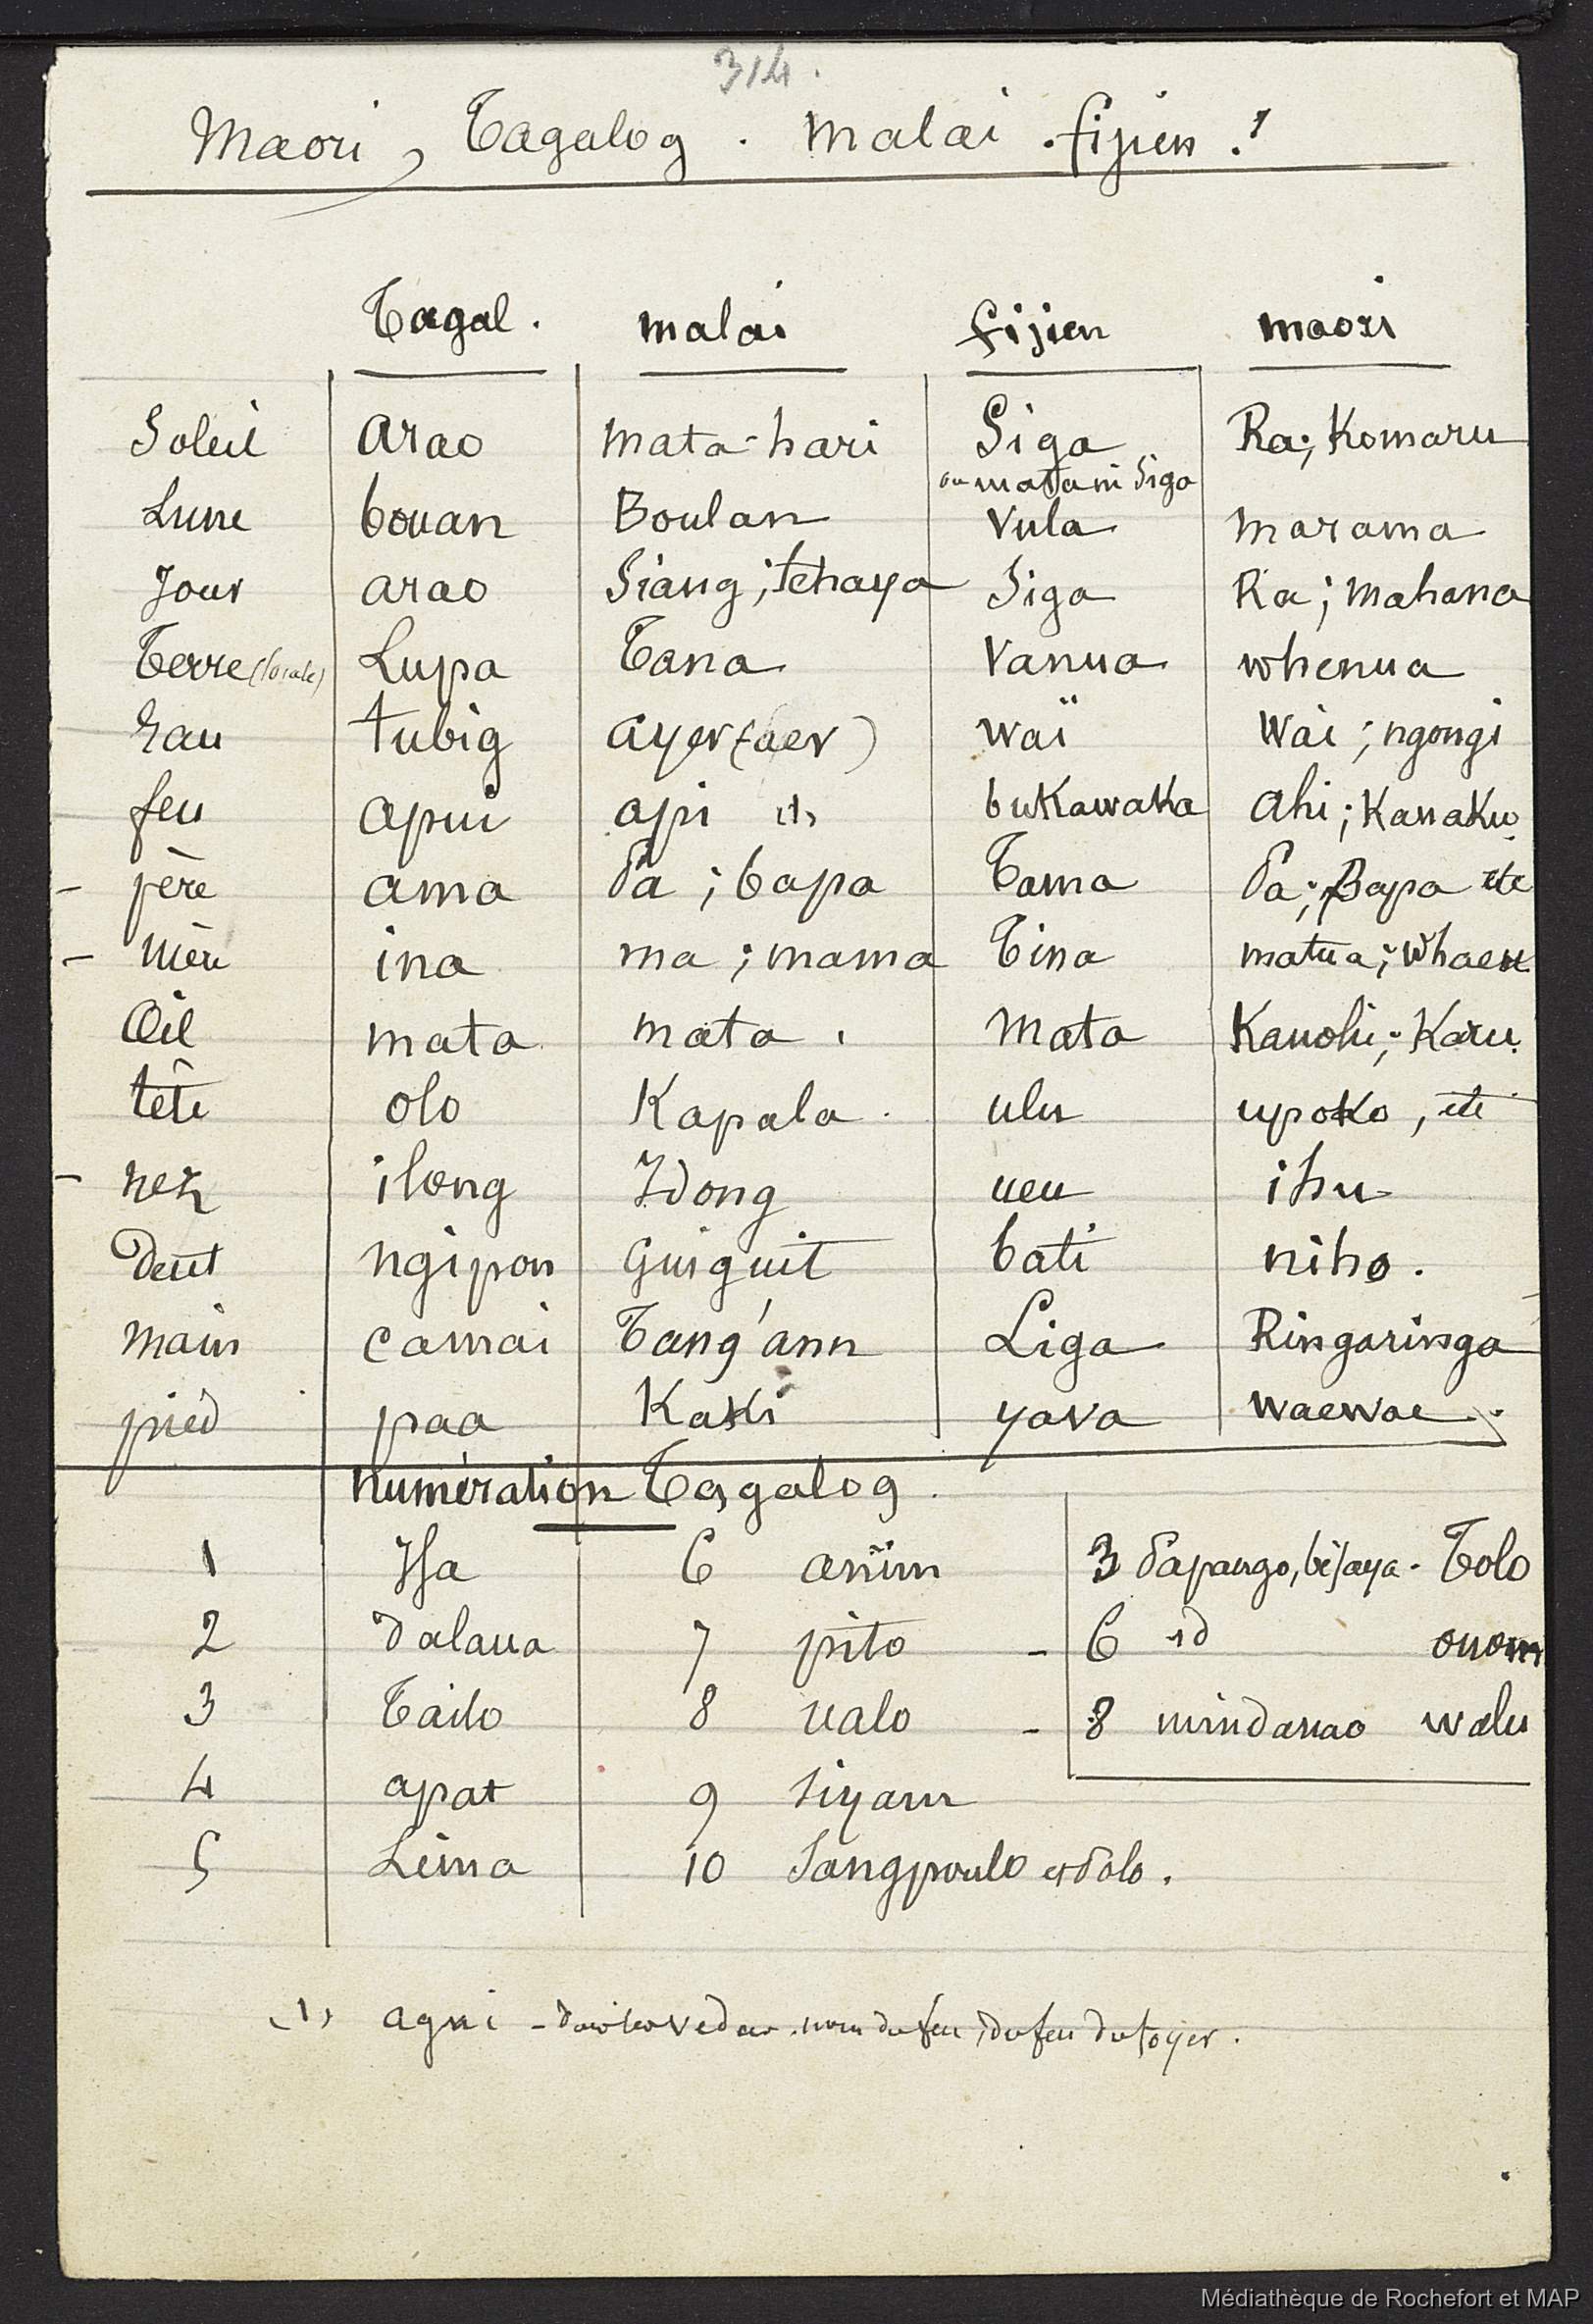 314.
Maori, Tagalog. malai. fijien.!
Tagal. malai fijien maori
Soleil arao mata-hari Siga Ra; Komaru
ou matani Siga
Lune bouan Boulan Vula marama
Jour arao Siang; tchaya Siga Ra; mahana
Terre (locale) Lupa Tana Vanua whenua
Eau tubig ayer (aer) waï Wai; ngongi
feu apui api (1) bukawaka ahi; Kanaku
- père ama Pa; bapa Tama Pa; Bapa etc
- mère ina ma; mama Tina matua; Whaea
Oeil mata mata. mata Kanohi; Karu.
tête olo Kapala. ulu upoko, etc
- nez ilong Idong ucu ihu
Dent ngipon Guiguit bati niho.
main camai Tang'ann Liga Ringaringa
pied paa Kaki yava waewae.
numération Tagalog.
1 Issa 6 anim 3 Papango, bissaya. Tolo
2 dalaua 7 pito - 6 id onom
3 Tailo 8 ualo - 8 mindanao walu
4 apat 9 siyam
5 Lima 10 Sangpoulo et Polo.
(1) agni - dans les vedas. nom du feu, du feu du foyer.
Médiathèque de Rochefort et MAP